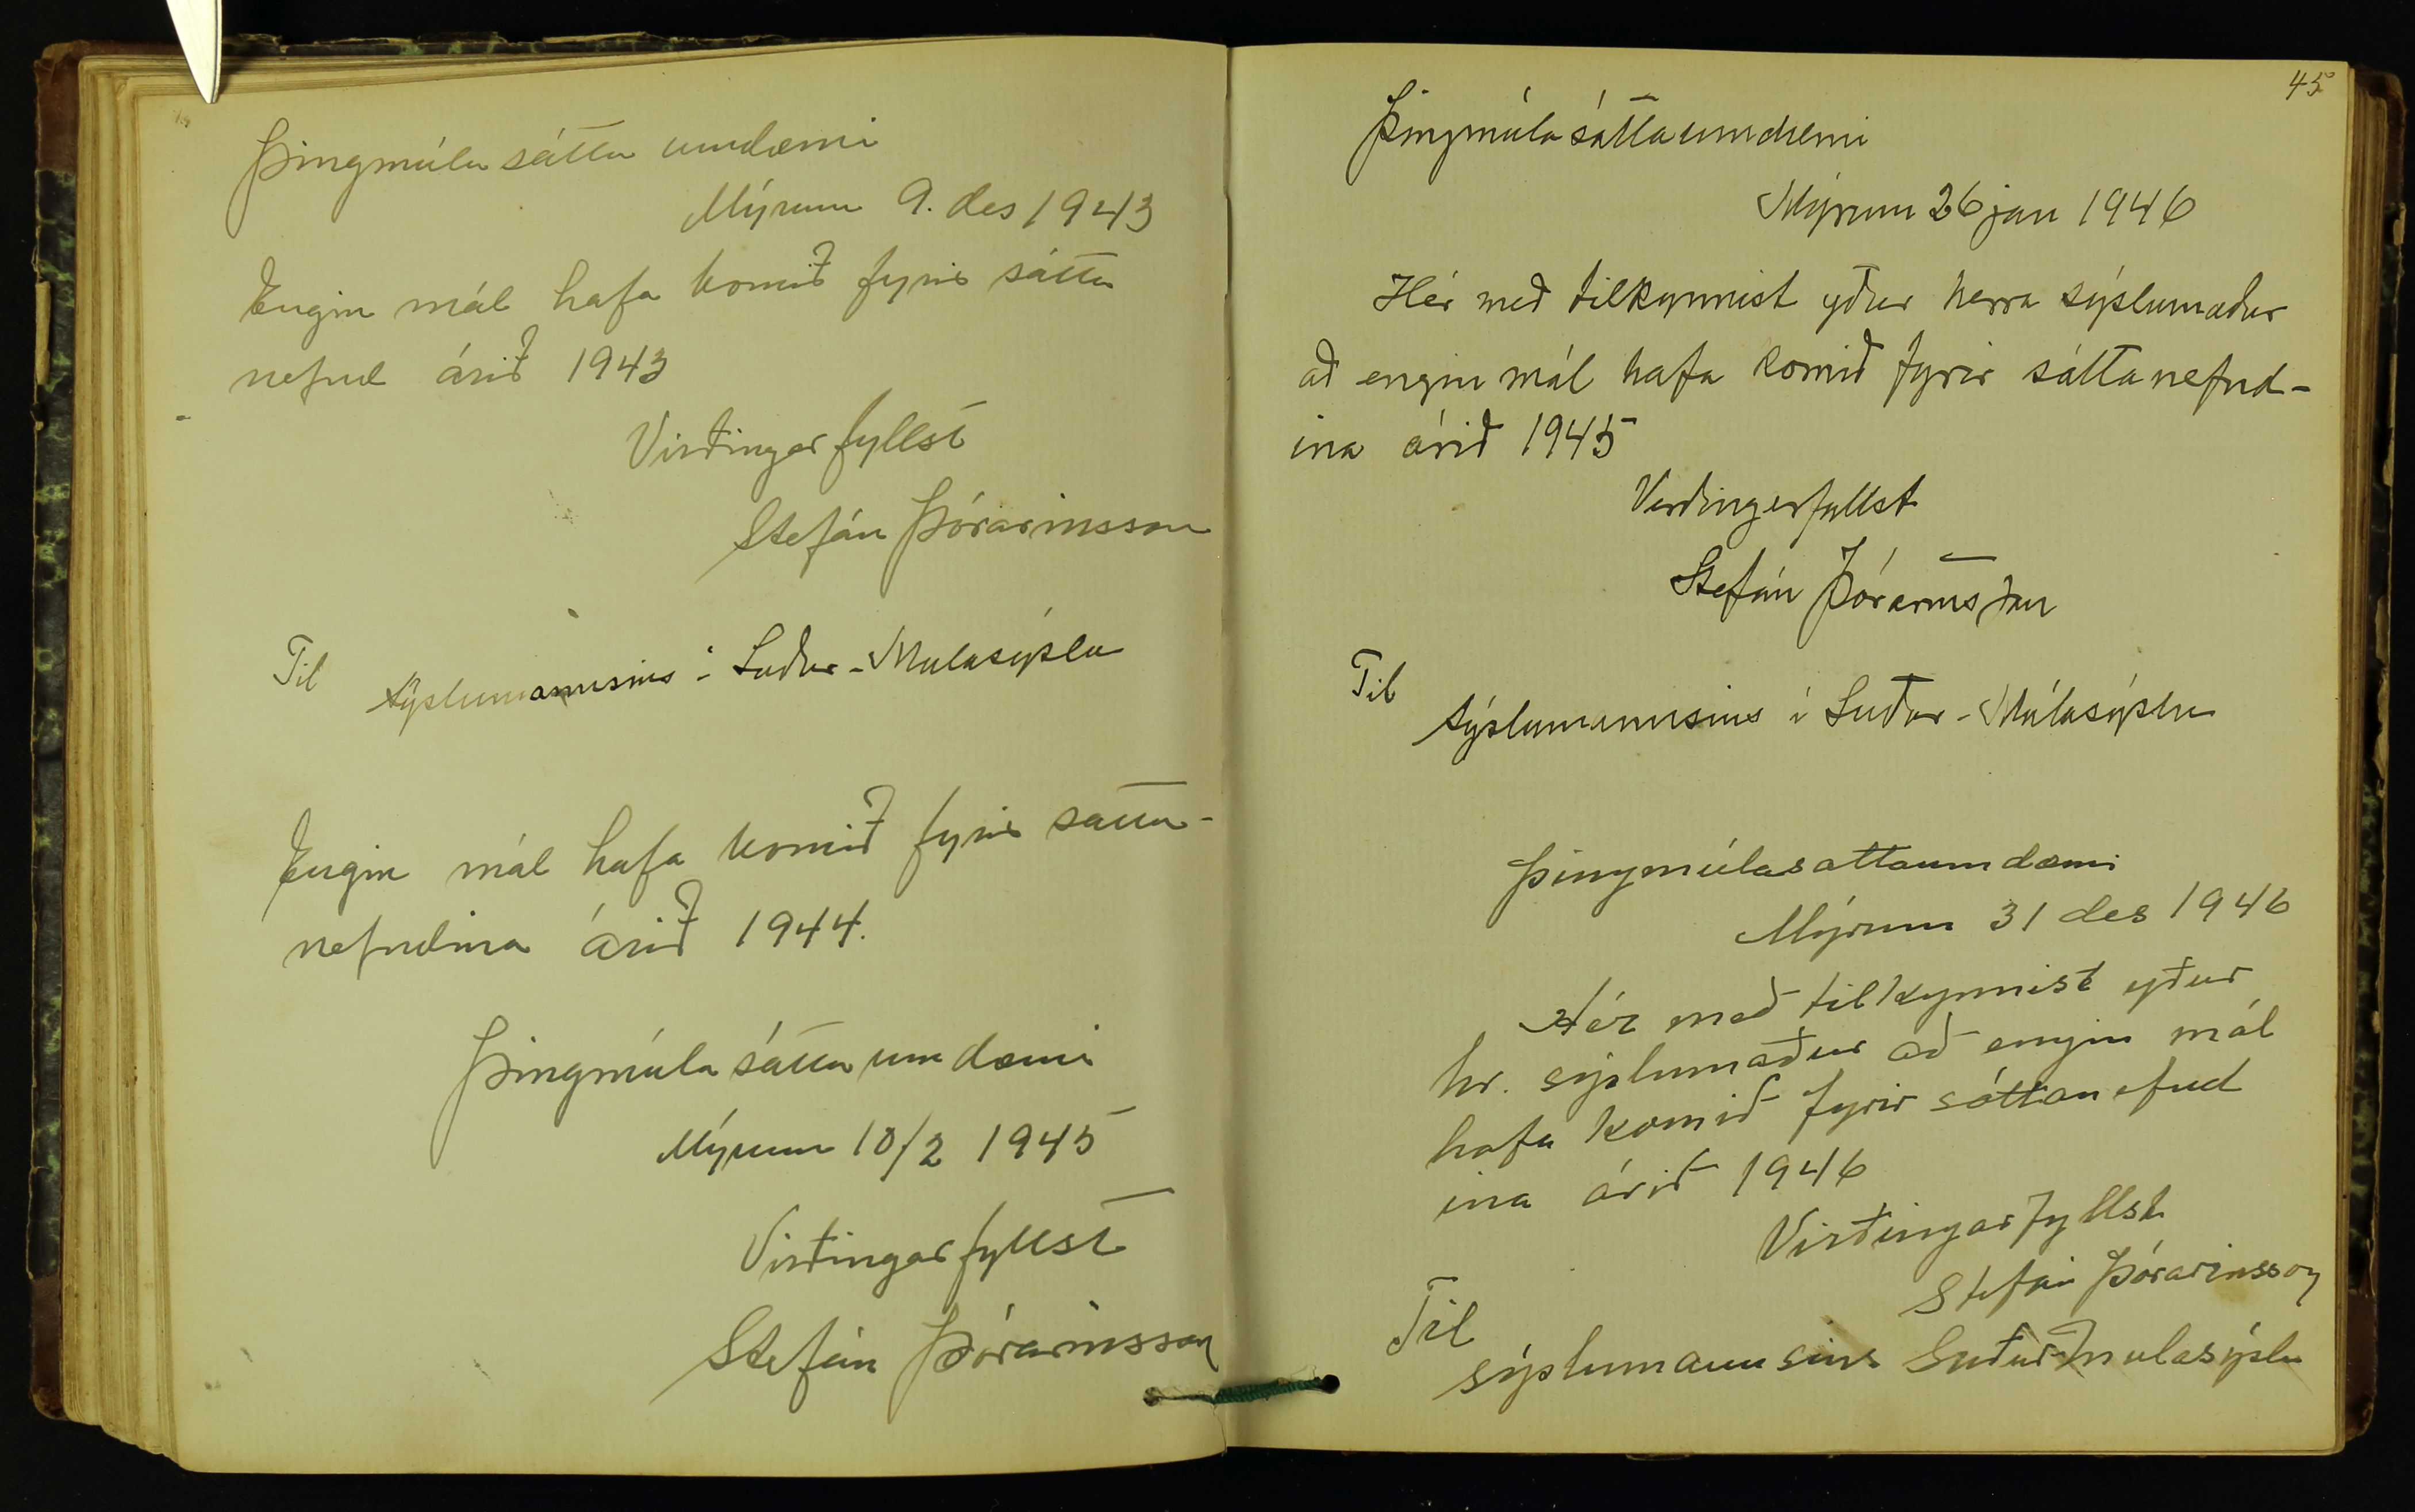 Þingmúla sátta umdæmi
Mýrum 9. des 1943
Engin mál hafa komið fyrir sátta
nefnd árið 1943
Virðingarfyllst
Stefán Þórarinsson
Til
sýslumannsins í Suður-Mulasýslu
Engin mál hafa komið fyrir sátta-
nefndina árið 1944.
Þingmúla sátta umdæmi
Mýrum 10/2 1945
Virðingarfyllst
Stefán Þórarinsson
45
Þingmúla sáttaumdæmi
Mýrum 26 jan 1946
Hér með tilkynnist yður herra sýslumaður
að engin mál hafa komið fyrir sáttanefnd-
ina árið 1945
Virðingarfyllst
Stefán Þórarinsson
Til
sýslumannsins í Suður-Múlasýslu
Þingmúlasattaumdæmi
Mýrum 31 des 1946
Hér með tilkynnist yður
hr. sýslumaður að engin mál
hafa komið fyrir sáttanefnd
ina árið 1946
Virðingarfyllst
Stefán Þórarinsson
Til
sýslumannsins Suður-Mulasýslu